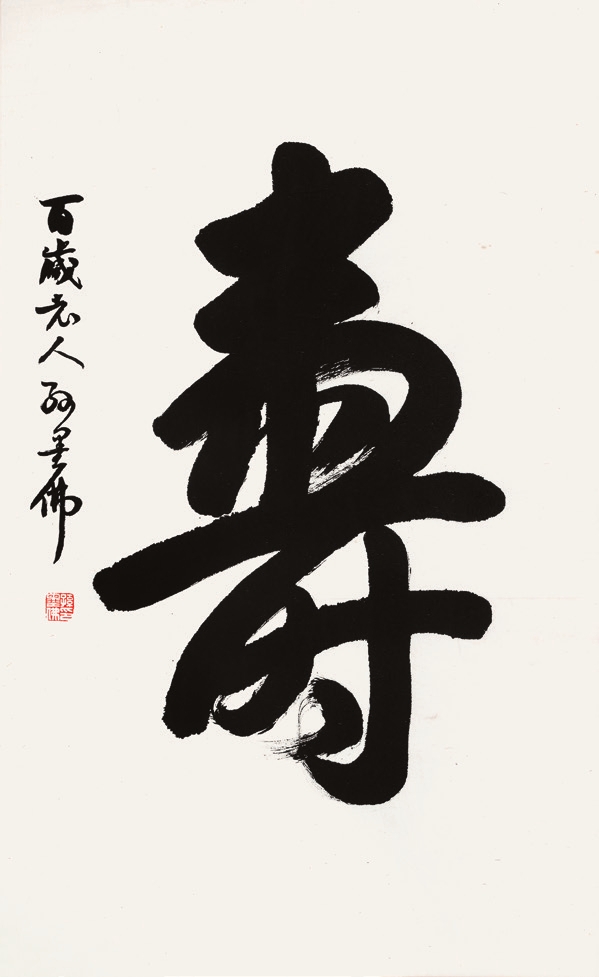 壽
百歲老人孫墨佛